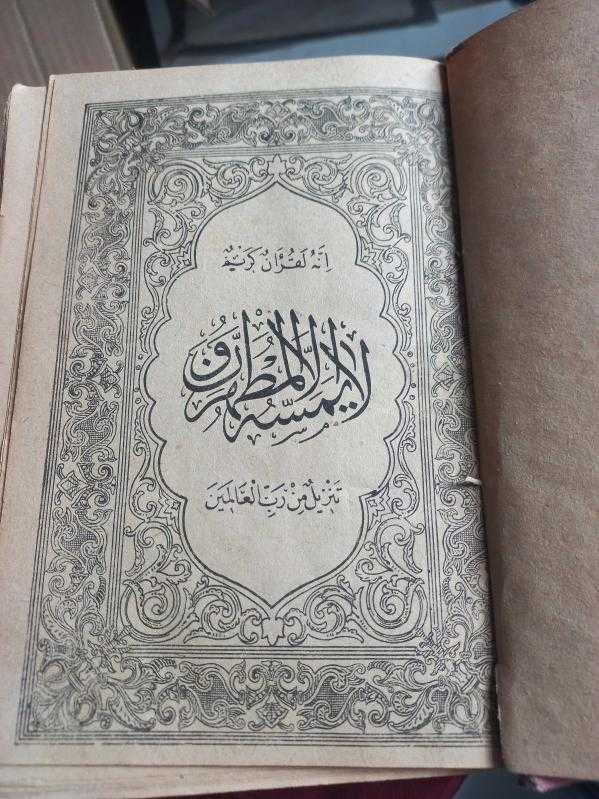 اِنَّهُ لَقُرْاٰنٌ كَرِيْمٌ
لا يمسّه الّا المطهّرون
تَنْزِيْلٌ مِنْ رَبِّ الْعَالَمِيَن